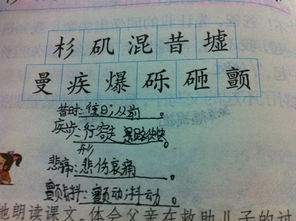 杉矶混昔墟
曼疾爆砾砸颤
昔时:往日;从前。
疾步:行容走路快。
形
悲痛:悲伤哀痛。
颤抖:颤动;抖动。
地朗读课文。体会父亲在救助儿子的过